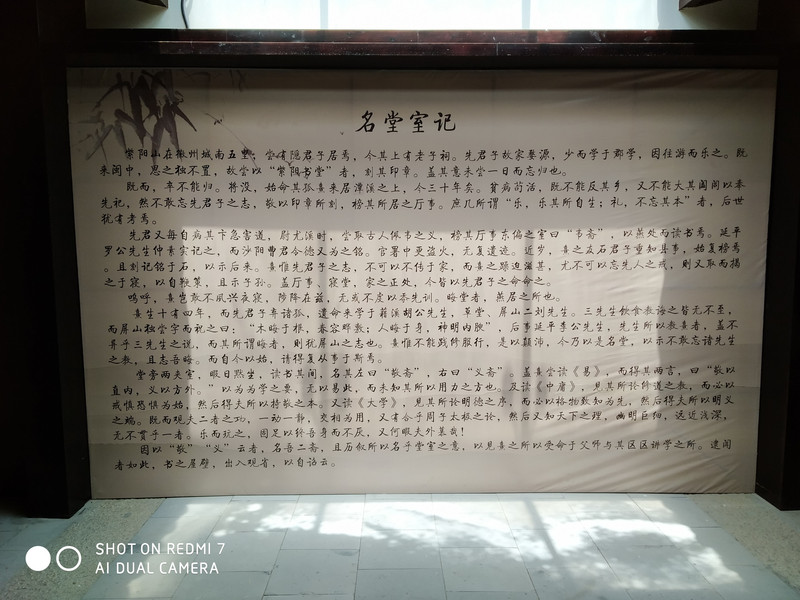 名堂室记
紫阳山在徽州城南五里，尝有隐君子居焉，今其上有老子祠。先君子故家婺源，少而学于郡学，因往游而乐之。既
来闽中，思之独不置，故尝以“紫阳书堂”者，刻其印章。盖其意未尝一日而忘归也。
既而，卒不能归。将没，始命其孤熹来居潭溪之上，今三十年矣。贫病苟活，既不能反其乡，又不能大其阖闾以奉
先祀，然不敢忘先君子之志，敬以印章所刻，榜其所居之厅事。庶几所谓“乐，乐其所自生；礼，不忘其本”者，后世
犹有考焉。
先君又每自病其卞急害道，尉尤溪时，尝取古人佩韦之义，榜其厅事东偏之室曰“韦斋”，以燕处而读书焉。延平
罗公先生仲素实记之，而沙阳曹君令德又为之铭。官署中更盗火，无复遗迹。近岁，熹之友石君子重知县事，始复榜焉
。且刻记铭于石，以示后来。熹惟先君子之志，不可以不传于家，而熹之躁迫滋甚，尤不可以忘先人之戒，则又取而揭
之于寝，以自鞭策，且示子孙。盖厅事、寝堂，家之正处，今皆以先君子之命命之。
呜呼，熹也敢不夙兴夜寐，陟降在兹，无或不虔以忝先训。晦堂者，燕居之所也。
熹生十有四年，而先君子弃诸孤，遗命来学于籍溪胡公先生，草堂、屏山二刘先生。三先生饮食教诲之皆无不至，
而屏山独尝字而祝之曰：“木晦于根，春容晔敷；人晦于身，神明内腴”，后事延平李公先生，先生所以教熹者，盖不
异乎三先生之说，而其所谓晦者，则犹屏山之志也。熹惟不能践修服行，是以颠沛，今乃以是名堂，以示不敢忘诸先生
之教，且志吾晦。而自今以始，请得复从事于斯焉。
堂旁两夹室，暇日默坐，读书其间，名其左曰“敬斋”，右曰“义斋”。盖熹尝读《易》，而得其两言，曰“敬以
直内，义以方外。”以为为学之要，无以易此，而未知其所以用力之方也。及读《中庸》，见其所论修道之教，而必以
戒慎恐惧为始，然后得夫所以持敬之本。又读《大学》，见其所论明德之序，而必以格物致知为先，然后得夫所以明义
之端。既而观夫二者之功，一动一静，交相为用，又有合乎周子太极之论，然后又知天下之理，幽明巨细，远近浅深，
无不贯乎一者。乐而玩之，固足以终吾身而不厌，又何暇夫外慕哉！
因以“敬”“义”云者，名吾二斋，且历叙所以名乎堂室之意，以见熹之所以受命于父师与其区区讲学之所。逮闻
者如此，书之屋壁，出入观省，以自诏云。
SHOT ON REDMI 7
AI DUAL CAMERA